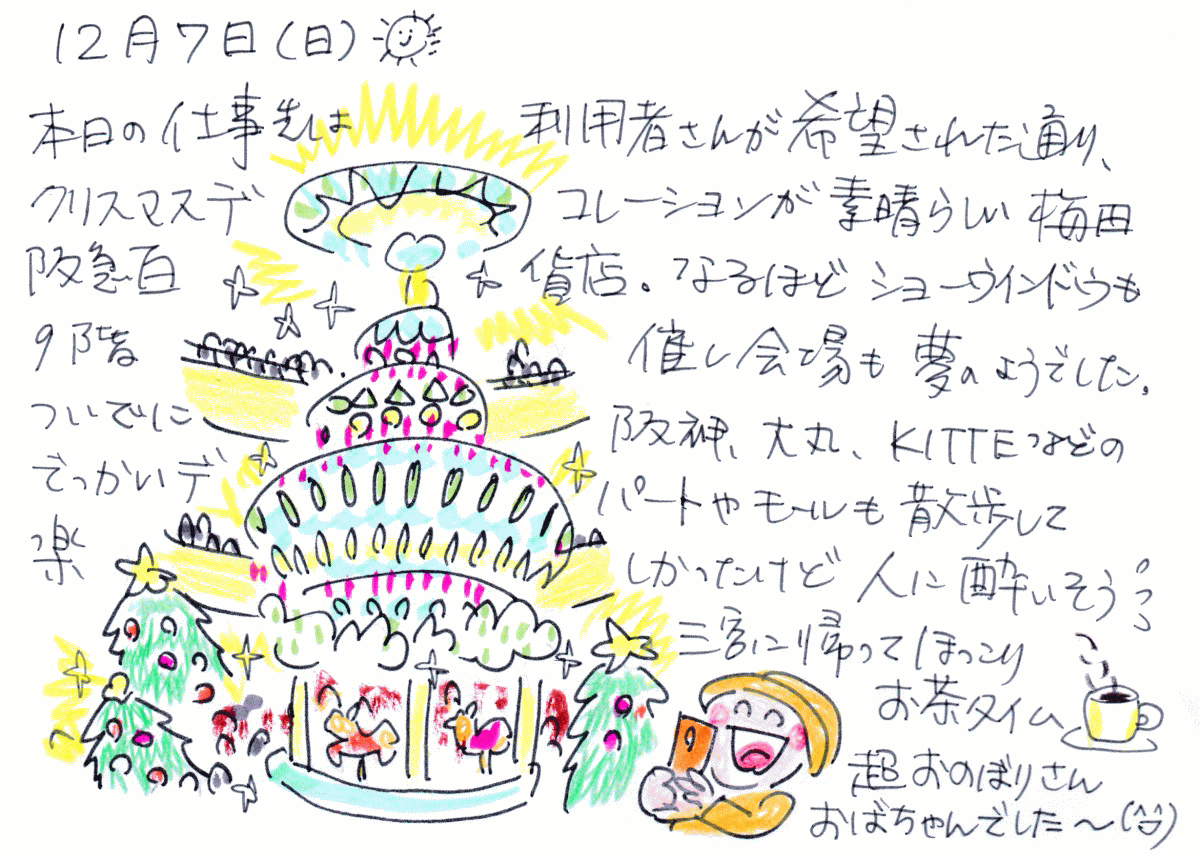 12月7日(日)
本日の仕事先は 利用者さんが希望された通り、
クリスマスデ コレーションが素晴らしい梅田
阪急百 貨店。なるほどショーウインドウも
9階 催し会場も夢のようでした。
ついでに 阪神、大丸、KITTEなどの
でっかいデ パートやモールも散歩して
楽 しかったけど人に酔いそう
三宮に帰ってほっこり
お茶タイム
超おのぼりさん
おばちゃんでした〜(^^)